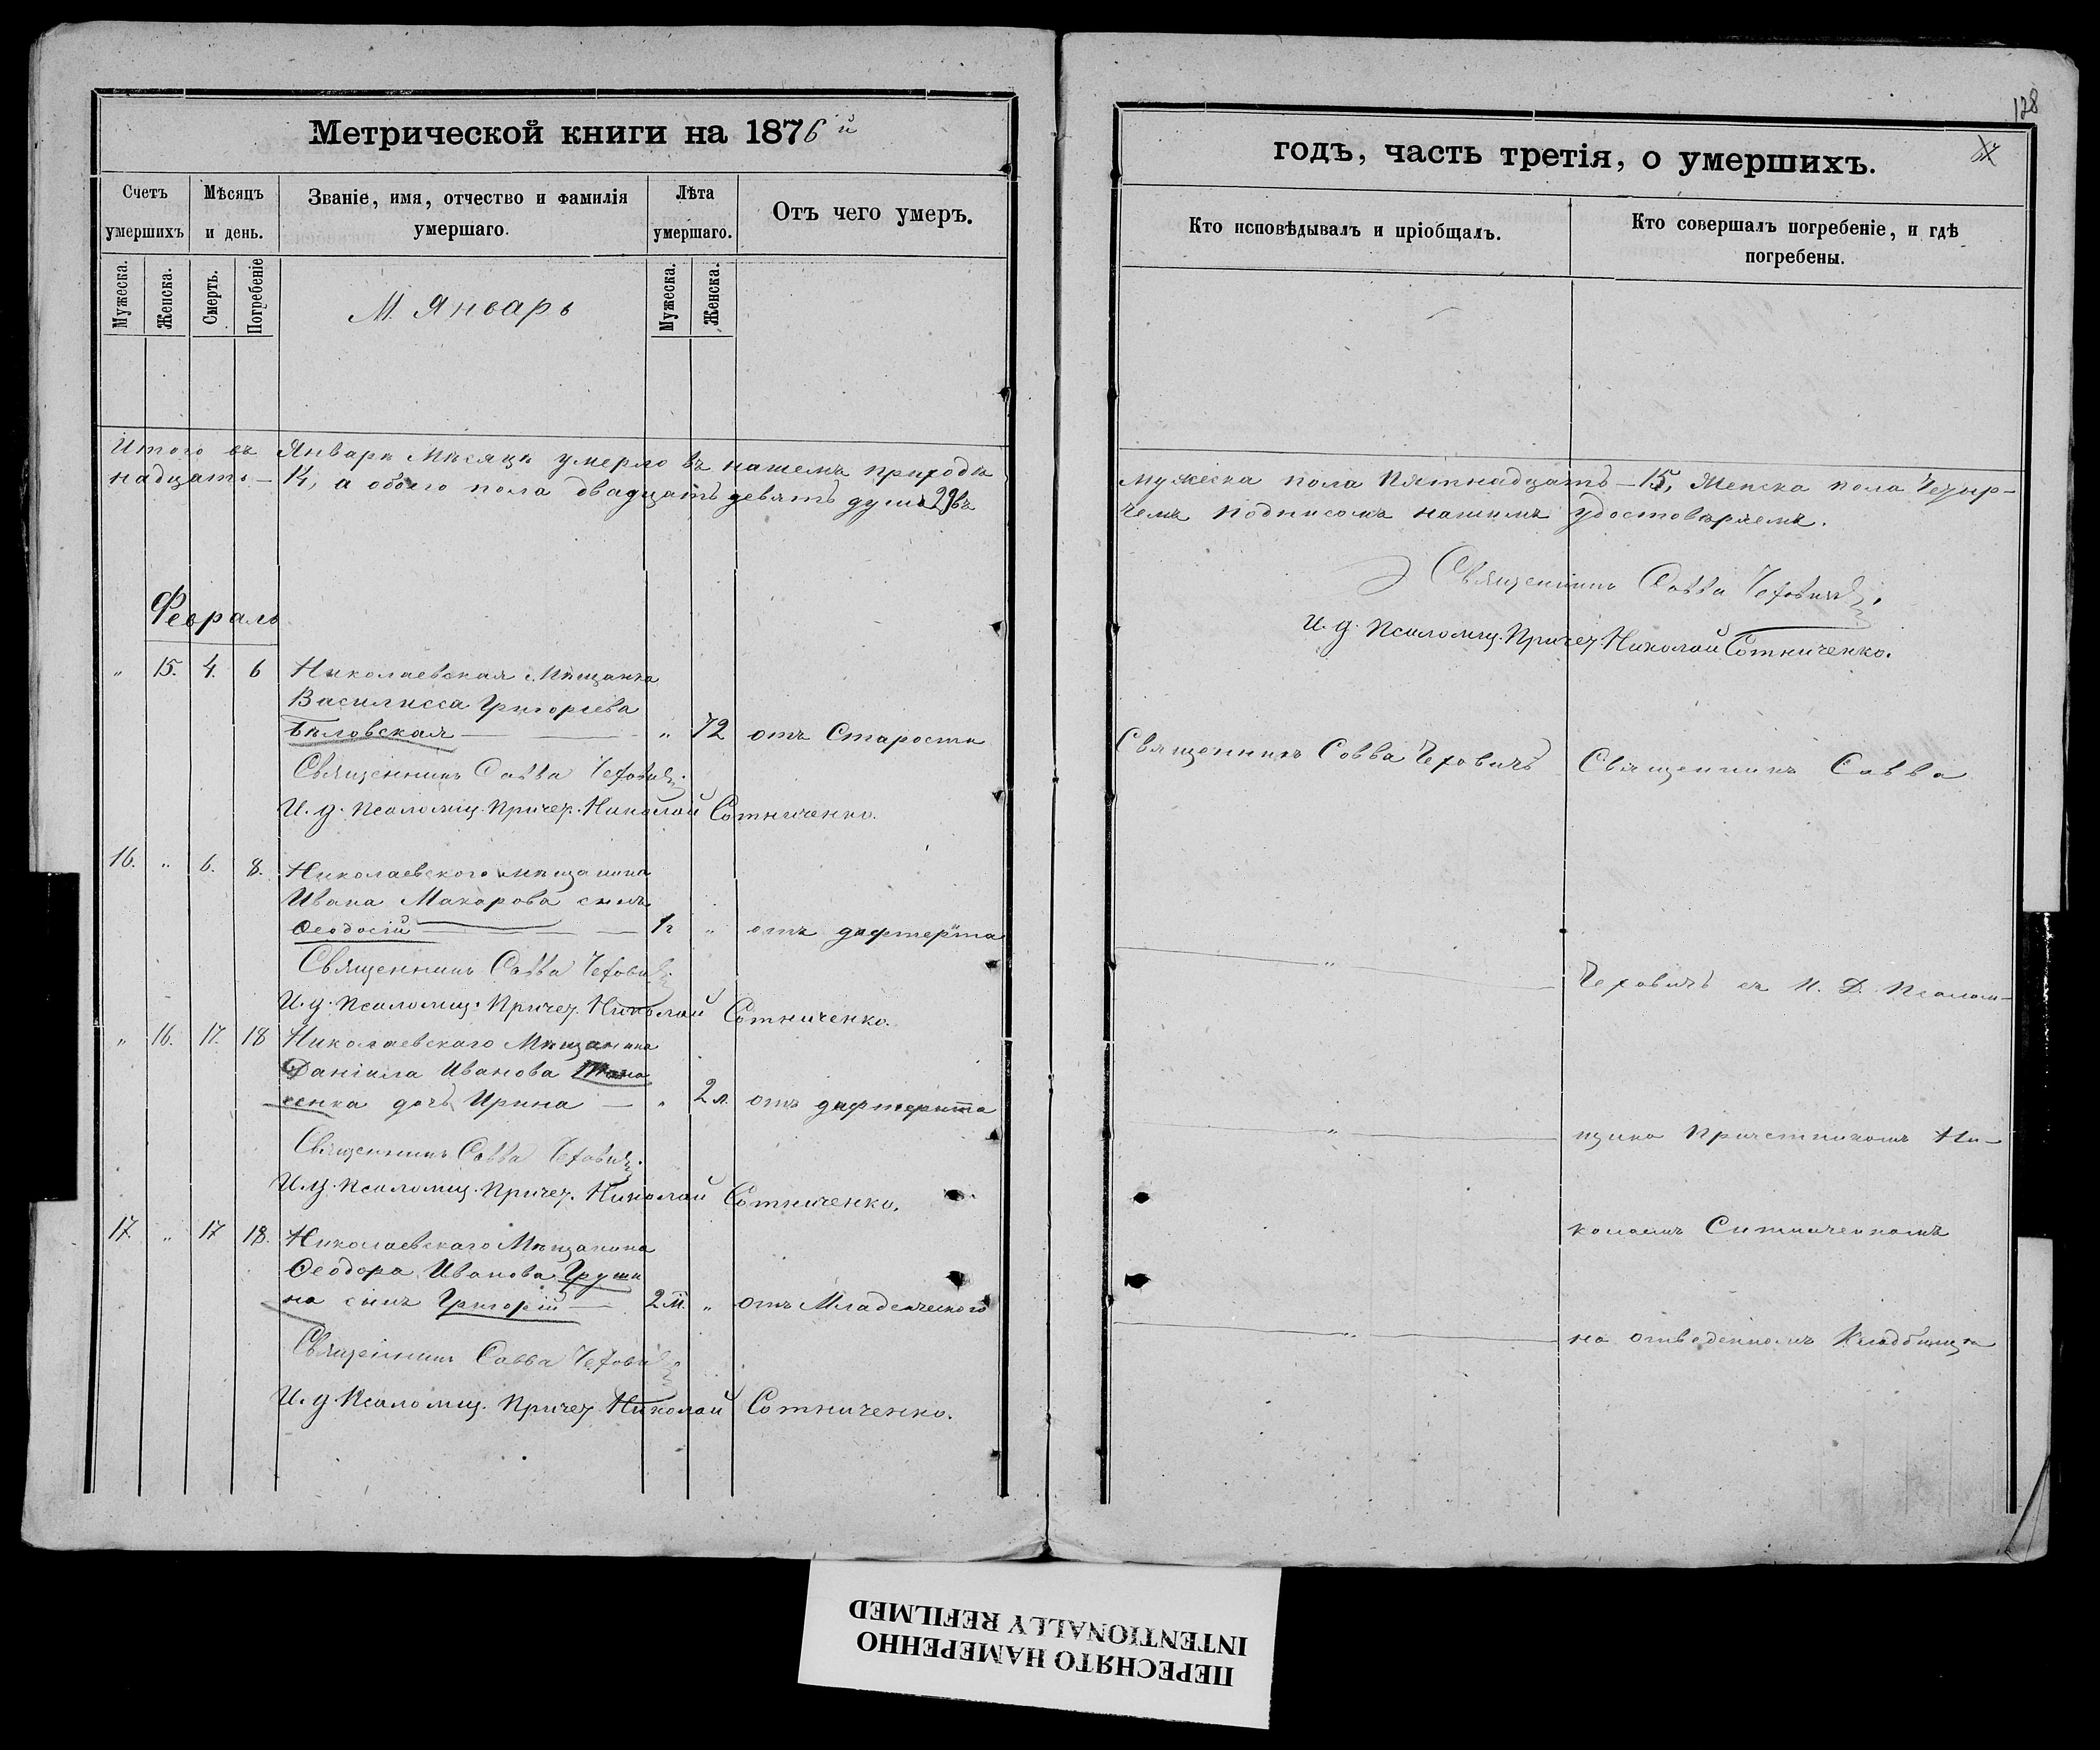 Метрической книги на 1876й
Счетъ умершихъ
Мѣсяцъ и день.
Званіе, имя, отчество и фамилія
умершаго.
Лѣта умершаго.
Отъ чего умеръ.
Мужеска.
Женска.
Смерть.
Погребеніе
М. Январь
Мужеска.
Женска.
Итого въ Январѣ мѣсяцѣ умерло въ нашемъ приходѣ
надцать – 14, а обоего пола двадцать девять душъ 29 въ
Февраль
„ 15. 4. 6 Николаевская Мѣщанка
Василисса Григорьева
Бѣловская — „ 72 отъ Старости
Священникъ Савва Чеховичъ.
И. д. Псаломщ. Причет. Николай Сотниченко.
16. „ 6. 8. Николаевского мѣщанина
Ивана Макарова сынъ
Ѳеодосій — 1г „ отъ дифтерита
Священникъ Савва Чеховичъ.
И. д. Псаломщ. Причет. Николай Сотниченко.
„ 16. 17. 18 Николаевскаго Мѣщанина
Даніила Иванова
сенка дочь Ирина — „ 2 л. отъ дифтерита
Священникъ Савва Чеховичъ.
И. д. Псаломщ. Причет. Николай Сотниченко.
17. „ 17 18. Николаевскаго Мѣщанина
Ѳеодора Иванова Груши
на сынъ Григорій — 2 м. „ отъ Младенческого
Священникъ Савва Чеховичъ.
И. д. Псаломщ. Причет. Николай Сотниченко.
128
годъ, часть третія, о умершихъ.
Кто исповѣдывалъ и пріобщалъ.
Кто совершалъ погребеніе, и гдѣ
погребены.
мужеска пола Пятнадцать – 15, Женска пола Четыр-
чемъ подписомъ нашимъ удостовѣряемъ.
Священникъ Савва Чеховичъ.
И. д. Псаломщ. Причет. Николай Сотниченко.
Священникъ Савва Чеховичъ Священникъ Савва
„ Чеховичъ съ И. Д. Псалом-
„ щика Причетникомъ Ни-
колаемъ Ситниченкомъ
„ на отведенномъ Кладбищѣ
ПЕРЕСНЯТО НАМЕРЕННО
INTENTIONALLY REFILMED